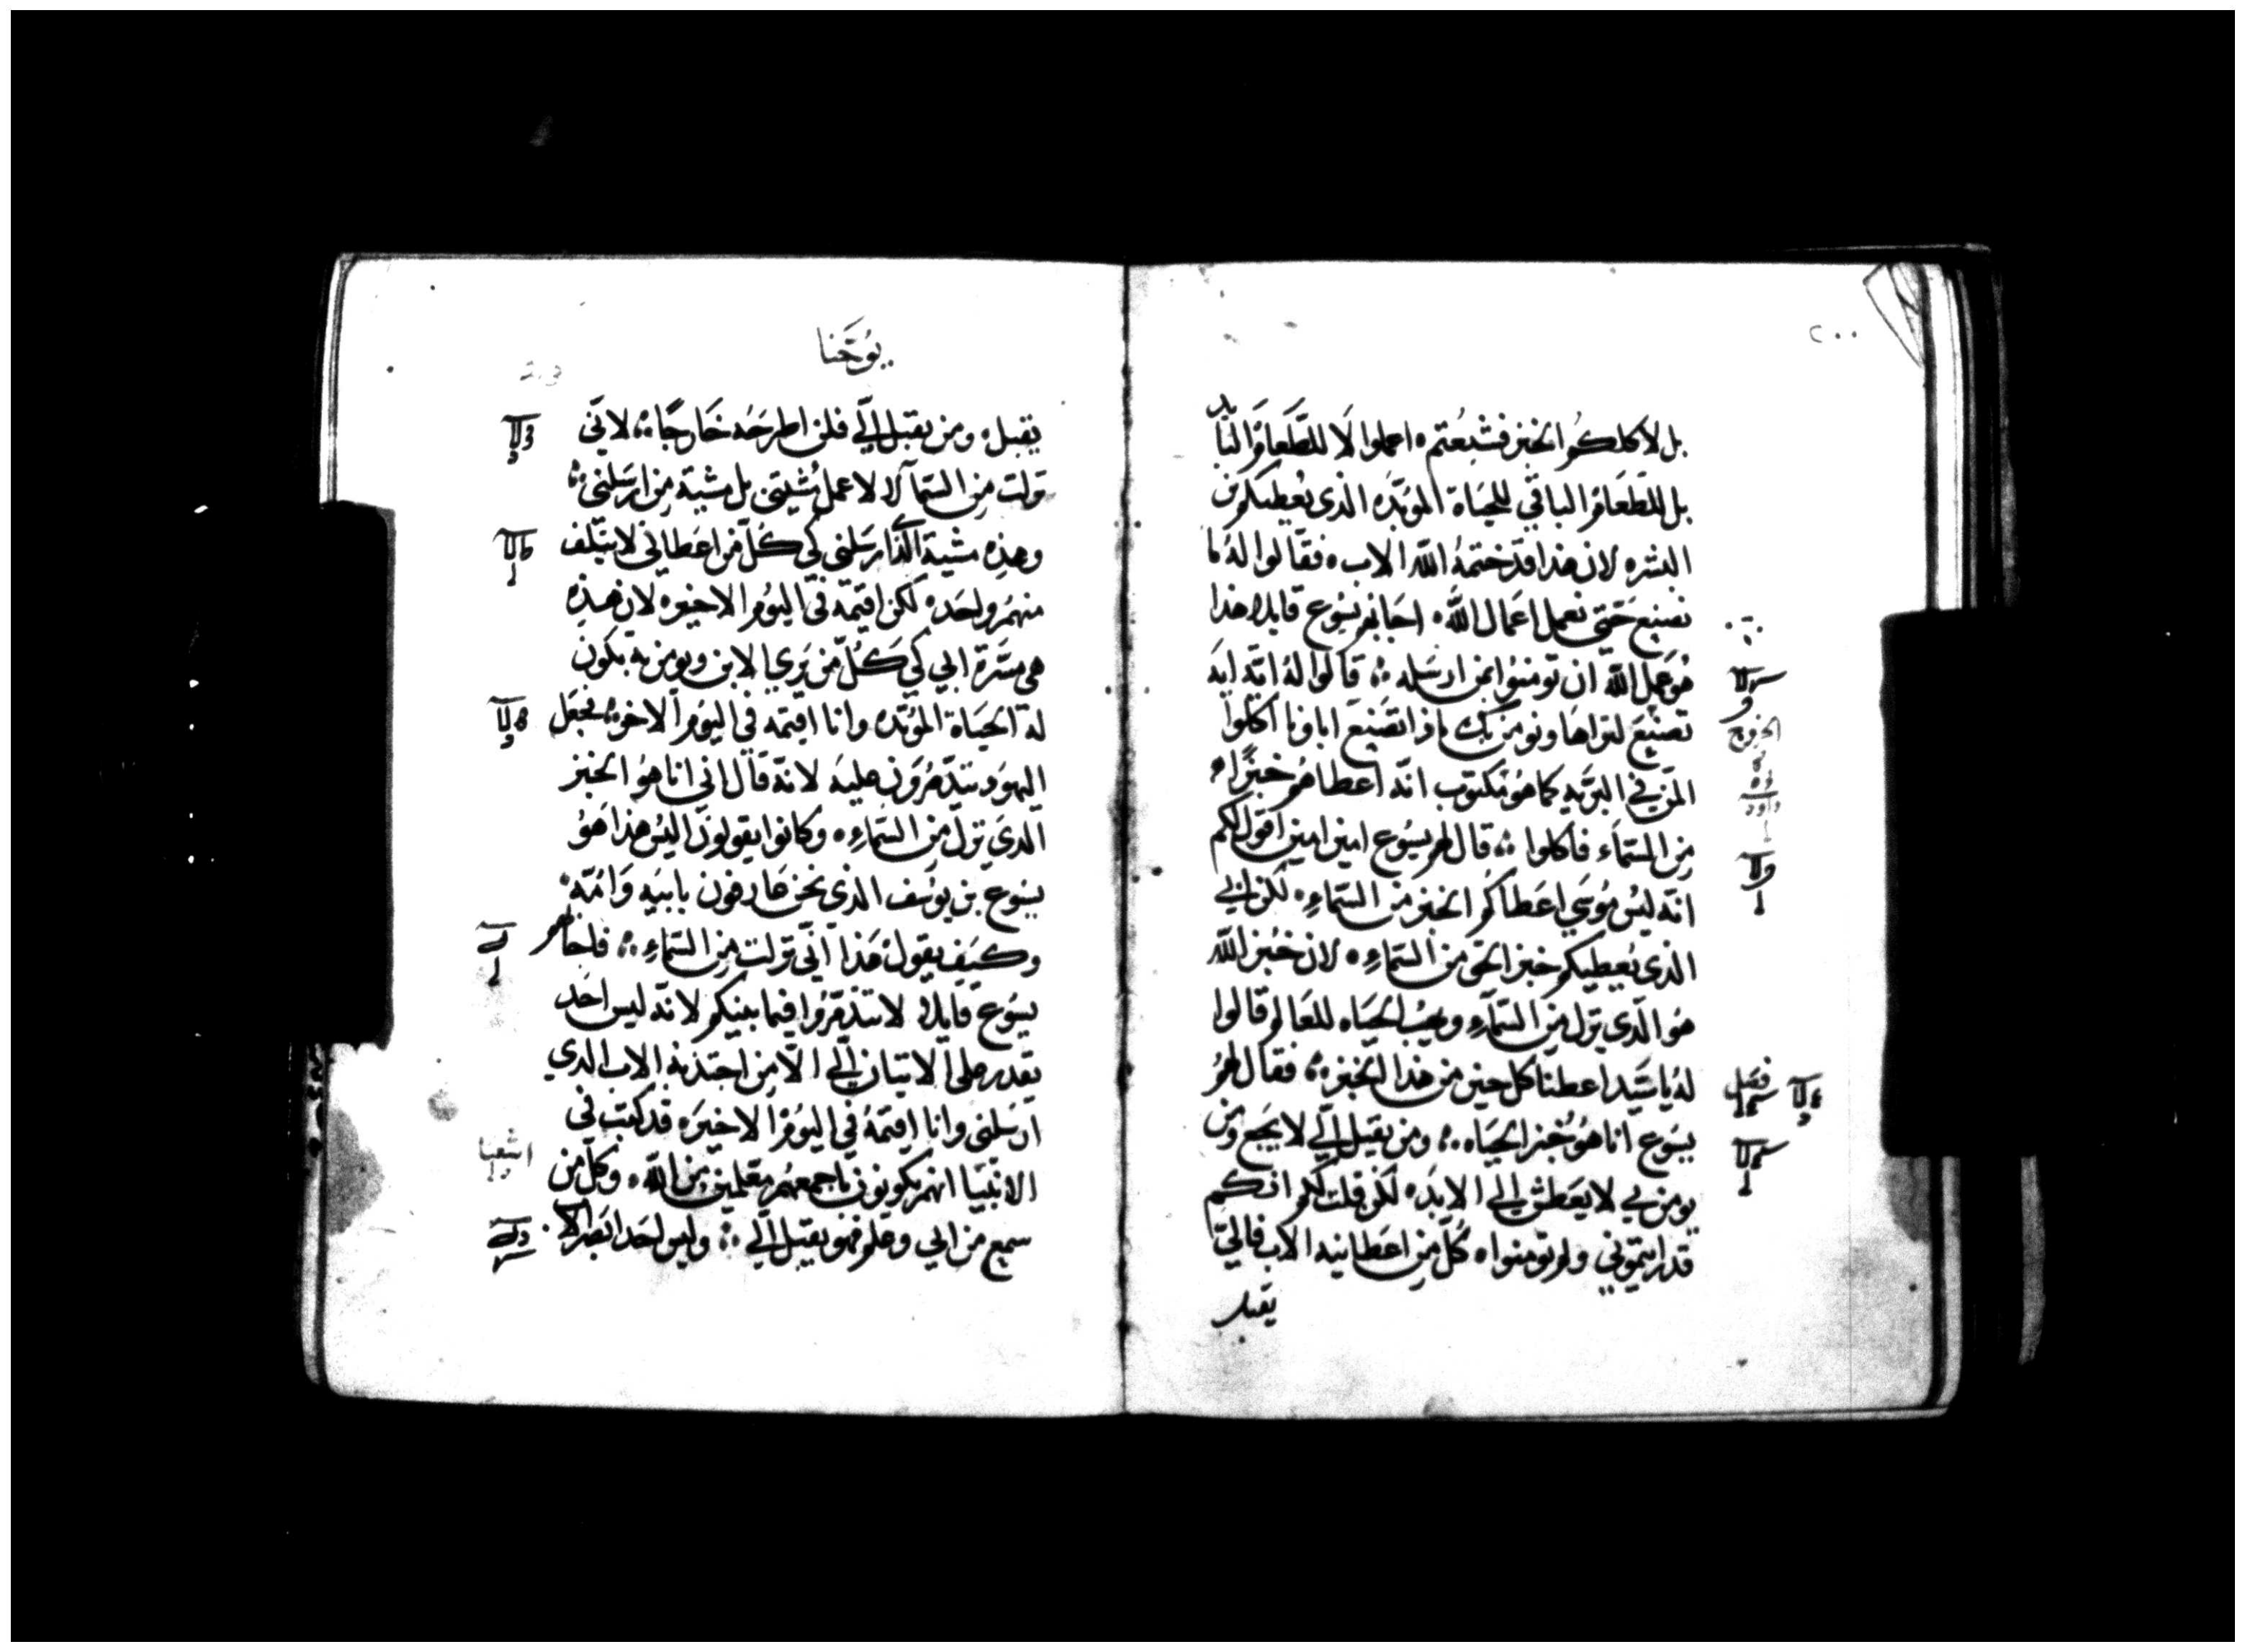 ٢٠٠
بل لاكلكم الخبز فشبعتم ه اعملوا لا للطعام البايد
بل للطعام الباقي للحياة المؤبده الذى يعطيكم بن
البشره لان هذا قد ختمهُ الله الاب ه فقالوا لهُ ما
نصنع حتي نعمل اعمال الله ه اجابهم يسوع قايلا هذا
هُو عمل الله ان تومنوا بمن ارسله ؞ قالوا لهُ اية ايه
تصنع لنراها ونومن بك ماذا تصنع اباونا اكلوا
المن في البريه كما هُو مكتوب انه اعطاهم خبزًا ه
من السماء فاكلوا ؞ قال لهم يسوع امين امين اقول لكم
انه ليس موسي اعطاكم الخبز من السماءِ ه لكن ابي
الذى يُعطيكم خبز الحق من السماءِ ه لان خُبز الله
هُو الذي نزل من السماءِ ويهب الحياه للعالم قالوا
لهُ يا سيد اعطنا كل حين من هذا الخبز ؞ فقال لهمُ
يسوع انا هُو خبز الحياه ؞ ومن يقبل الي لا يجع ومن
يومن بي لا يعطش الي الابده لكن قلت لكم انكم
قد رايتموني ولم تومنوا ه كُل من اعطانيه الاب فالي
يقبل
الخروج
داود
فصل
يُوحَنا
يقبل ه ومن يقبل الي فلن اطرحَه خارجًا ؞ لاني
نزلت من السما لا لاعمل مشيتي بل مشية من ارسلني ؞
وهذِه مشية الذى ارسلني كي كل من اعطاني لا يتلف
منهم واحده لكن اقيمه في اليوم الاخيره لان هذِه
هى مسرة ابي كي كُل من يرَي الابن ويومن به يكون
له الحياة المؤبده وانا اقيمه في اليوم الاخر ؞ فجعل
اليهود يتذمرون عليه لانه قال اني انا هُو الخبز
الذي نزل من السماءِ ه وكانوا يقولون اليس هذا هوُ
يسوع بن يوسف الذى نحن عارفون بابيه وامه
وكيف يقول هذا اني نزلت من السماءِ ؞ فاجابهم
يسوع قايلا لا تتذمروا فيما بينكم لانه ليس احد
يقدر على الاتيان الي الا من اجتذبه الاب الذي
ارسلني وانا اقيمهُ في اليوم الاخيره قد كتب في
الانبيا انهم يكونون باجمعهم معلمين من الله ه وكل من
سمع من ابي وعلم فهو يقبل الي ؞ وليس احد ابصر الاب
اشعيا